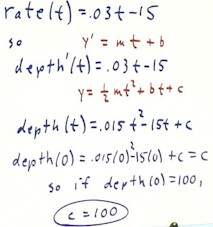 rate(t) = .03t - 15
so y' = mt + b
depth'(t) = .03t - 15
y = ½mt² + bt + c
depth(t) = .015t² - 15t + c
depth(0) = .015(0)² - 15(0) + c = c
so if depth(0) = 100,
c = 100